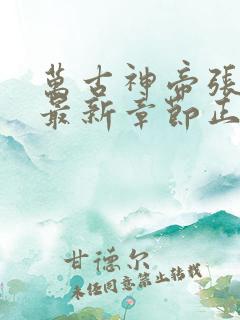 萬古神帝張
最新章節正
甘德尔
未經同意禁止轉載